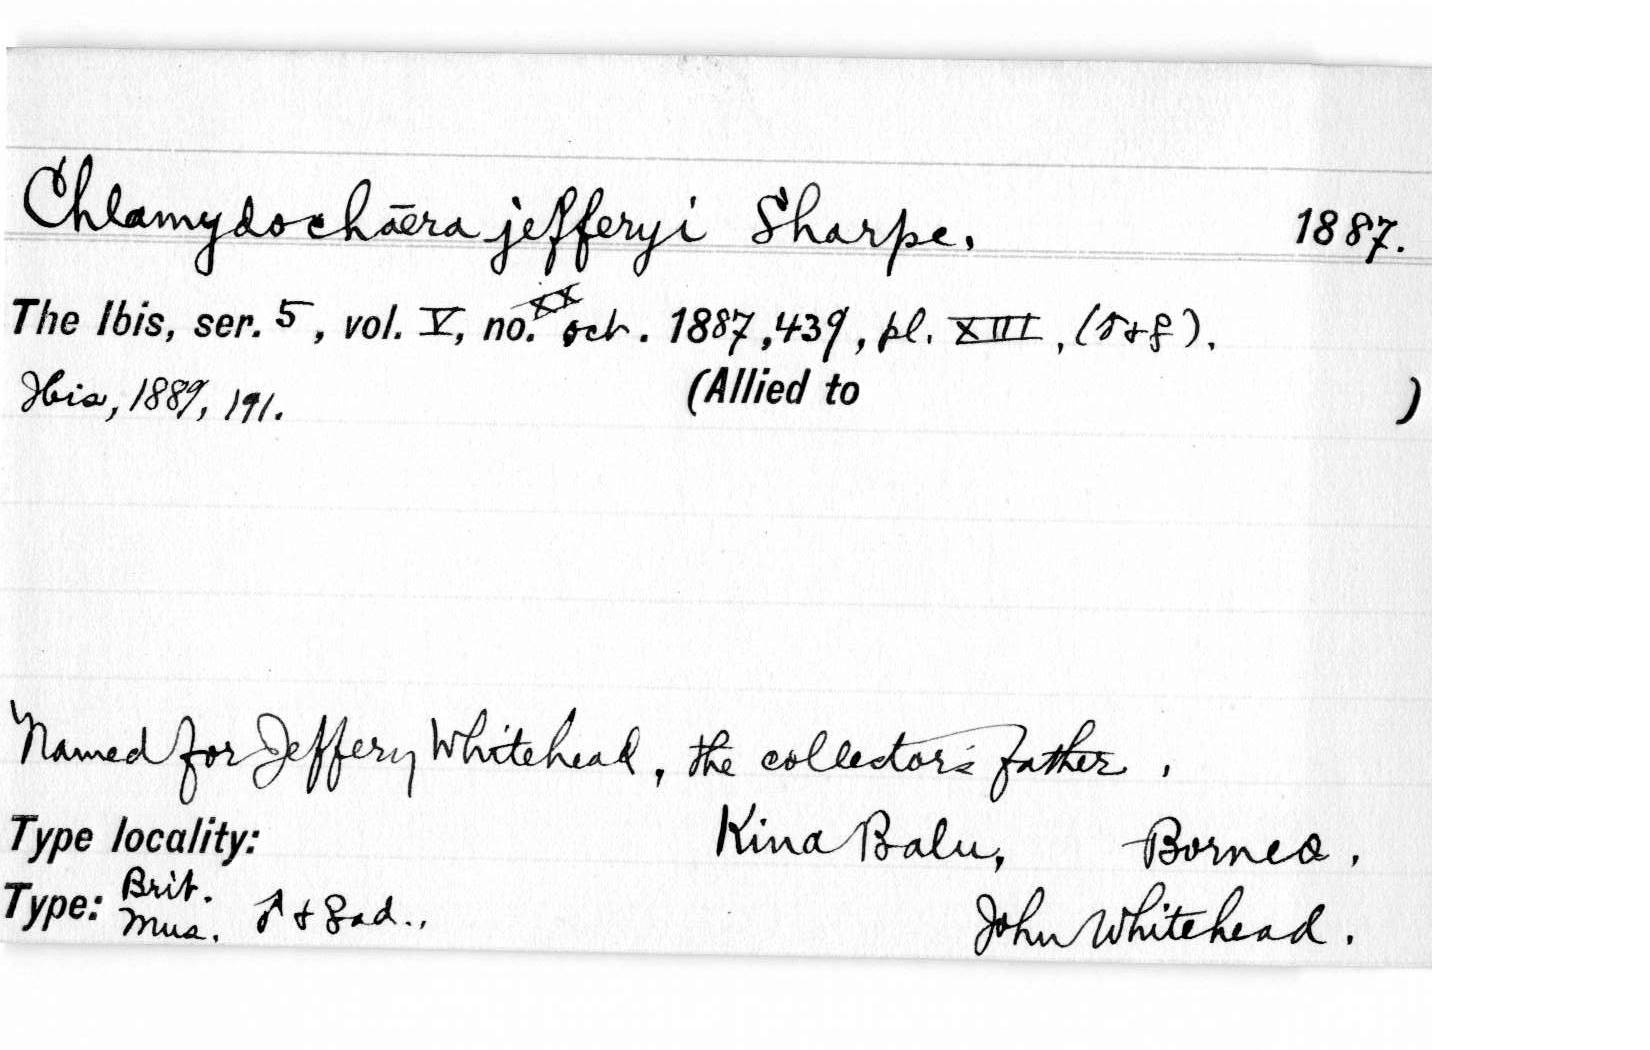 Chlamydochāera jefferyi Sharpe. 1887.
The Ibis, ser. 5, vol. V, no. XX Oct. 1887, 439, pl. XIII, (♂ + ♀).
Ibis, 1889, 191. (Allied to )
Named for Jeffery Whitehead, the collector's father.
Type locality: Kina Balu, Borneo.
Type: Brit. Mus. ♂ + ♀ ad.. John Whitehead.